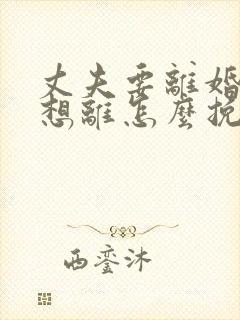 丈夫要離婚
想離怎麼挽
西銮沐